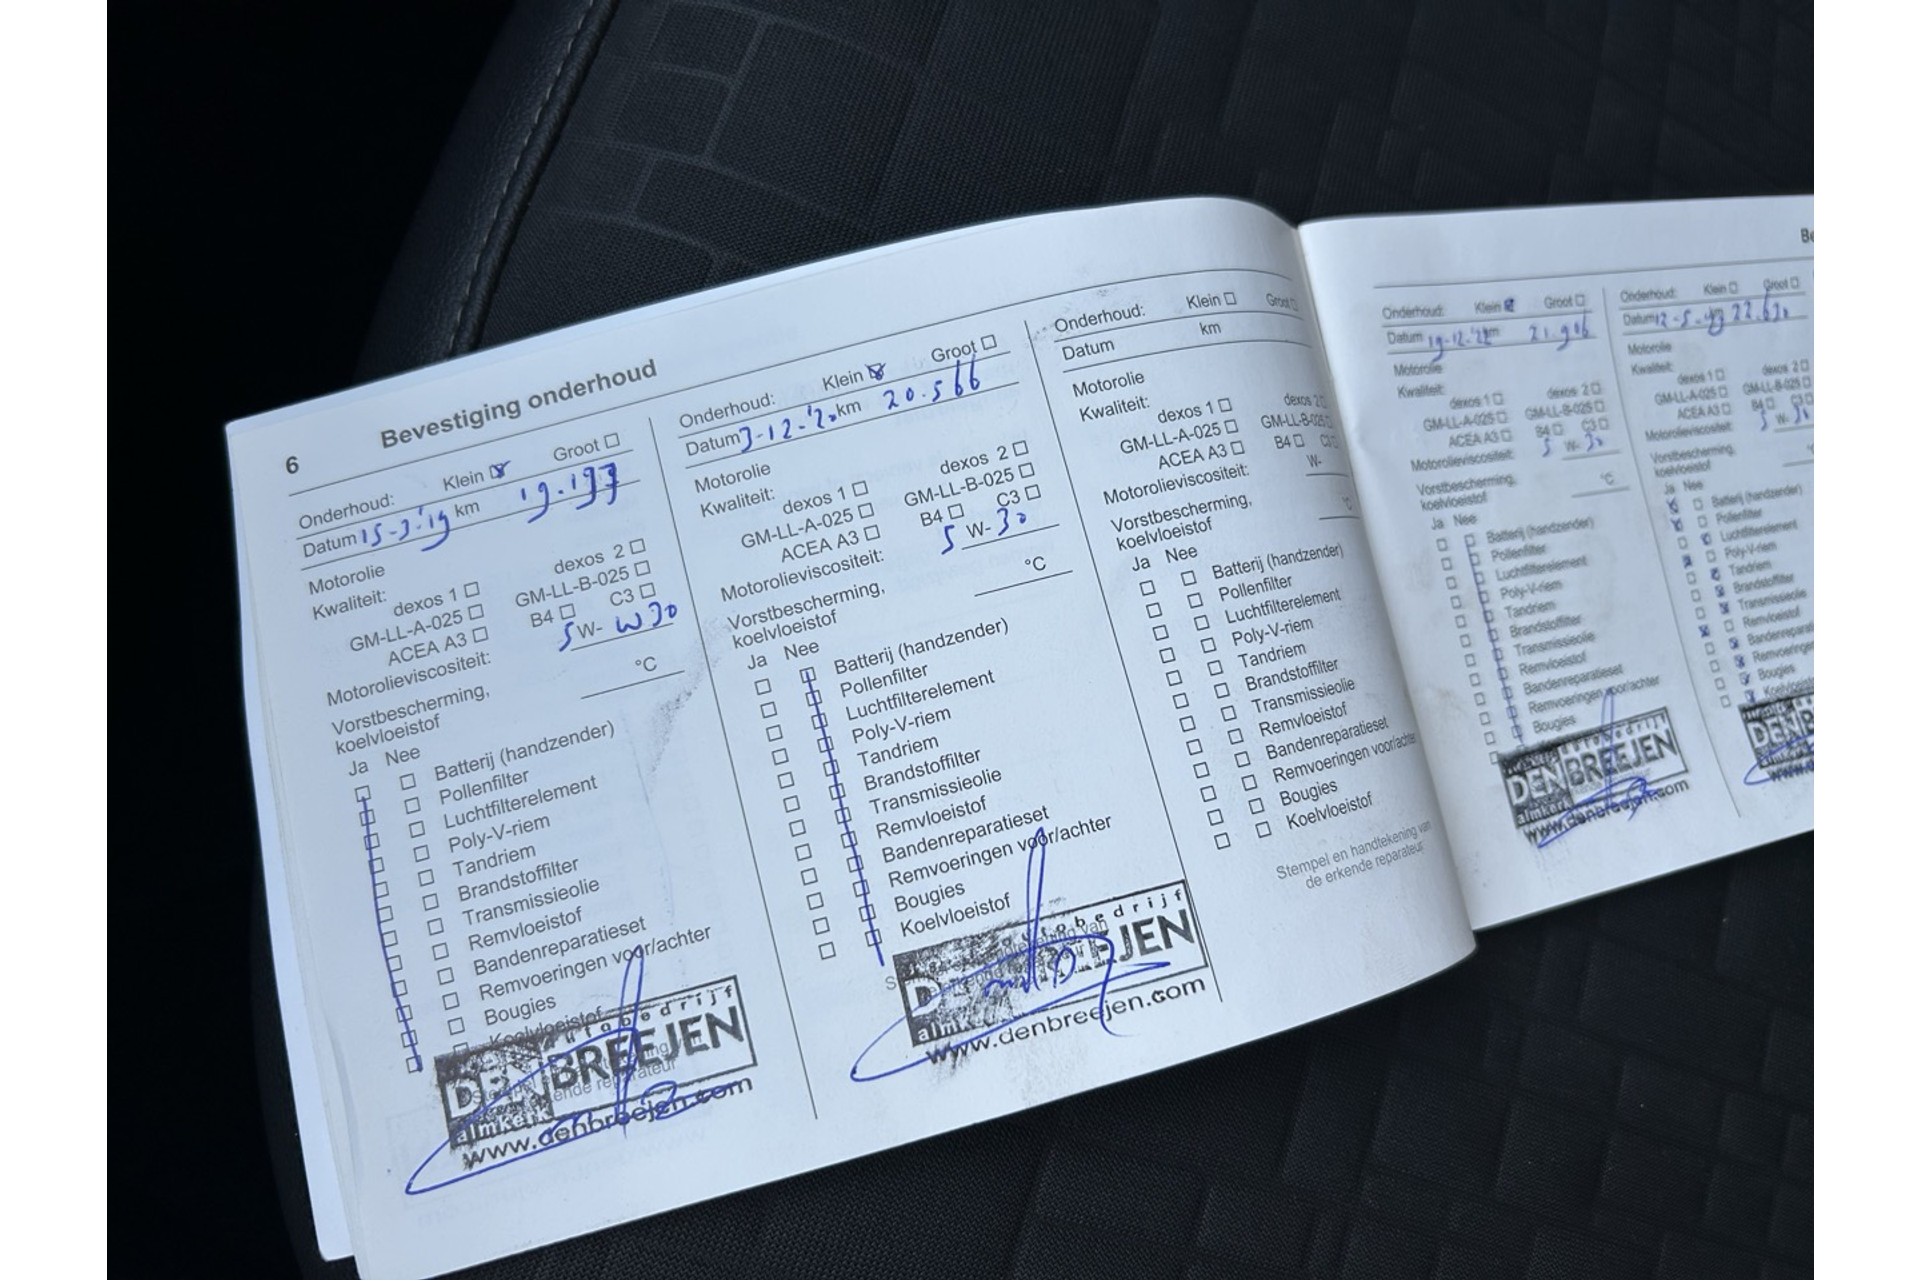 6 Bevestiging onderhoud
Onderhoud: Klein Groot
Datum 15-3-'19 km 19.197
Motorolie
Kwaliteit: dexos 1 dexos 2
GM-LL-A-025 GM-LL-B-025
ACEA A3 B4 C3
Motorolieviscositeit: 5 W- W30
Vorstbescherming,
koelvloeistof °C
Ja Nee
Batterij (handzender)
Pollenfilter
Luchtfilterelement
Poly-V-riem
Tandriem
Brandstoffilter
Transmissieolie
Remvloeistof
Bandenreparatieset
Remvoeringen voor/achter
Bougies
Koelvloeistof
DEN BREEJEN
www.denbreejen.com
Onderhoud: Klein Groot
Datum 3-12-'20 km 20.566
Motorolie
Kwaliteit: dexos 1 dexos 2
GM-LL-A-025 GM-LL-B-025
ACEA A3 B4 C3
Motorolieviscositeit: 5 W- 30
Vorstbescherming,
koelvloeistof °C
Ja Nee
Batterij (handzender)
Pollenfilter
Luchtfilterelement
Poly-V-riem
Tandriem
Brandstoffilter
Transmissieolie
Remvloeistof
Bandenreparatieset
Remvoeringen voor/achter
Bougies
Koelvloeistof
www.denbreejen.com
Onderhoud: Klein Groot
Datum km
Motorolie
Kwaliteit: dexos 1 dexos 2
GM-LL-A-025 GM-LL-B-025
ACEA A3 B4 C3
Motorolieviscositeit: W-
Vorstbescherming,
koelvloeistof °C
Ja Nee
Batterij (handzender)
Pollenfilter
Luchtfilterelement
Poly-V-riem
Tandriem
Brandstoffilter
Transmissieolie
Remvloeistof
Bandenreparatieset
Remvoeringen voor/achter
Bougies
Koelvloeistof
Stempel en handtekening van
de erkende reparateur
Onderhoud: Klein Groot
Datum km 21.906
Motorolie
Kwaliteit: dexos 1 dexos 2
GM-LL-A-025 GM-LL-B-025
ACEA A3 B4 C3
Motorolieviscositeit: 5 W- 30
Vorstbescherming,
koelvloeistof °C
Ja Nee
Batterij (handzender)
Pollenfilter
Luchtfilterelement
Poly-V-riem
Tandriem
Brandstoffilter
Transmissieolie
Remvloeistof
Bandenreparatieset
Remvoeringen voor/achter
Bougies
DEN BREEJEN
www.denbreejen.com
Onderhoud: Klein Groot
Datum 22.630
Motorolie
Kwaliteit: dexos 1 dexos 2
GM-LL-A-025 GM-LL-B-025
ACEA A3 B4 C3
Motorolieviscositeit: 5 W- 30
Vorstbescherming,
koelvloeistof
Ja Nee
Batterij (handzender)
Pollenfilter
Luchtfilterelement
Poly-V-riem
Tandriem
Brandstoffilter
Transmissieolie
Remvloeistof